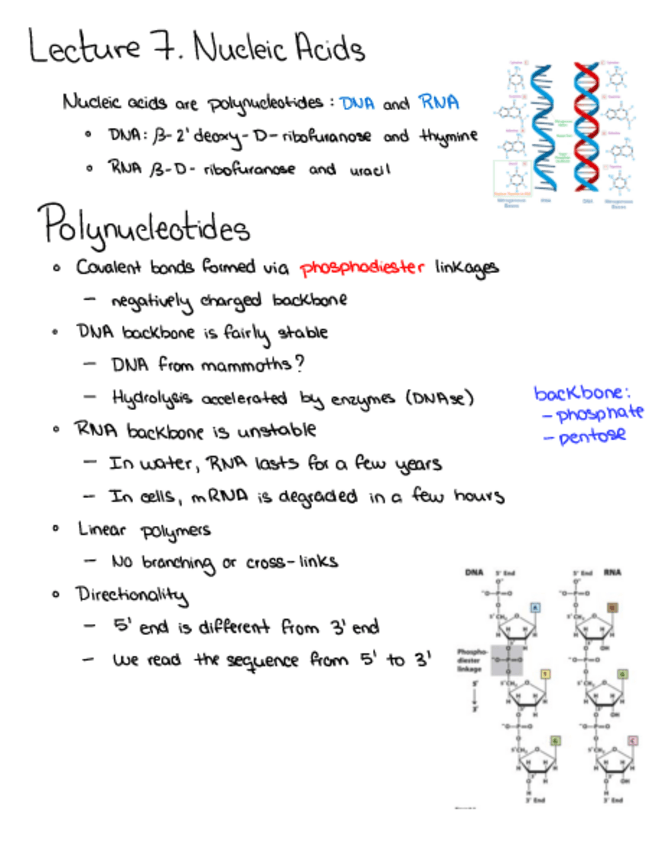 Lecture 7. Nucleic Acids
Nucleic acids are polynucleotides : DNA and RNA
• DNA: β-2' deoxy-D-ribofuranose and thymine
• RNA β-D-ribofuranose and uracil
Nitrogenous Bases
RNA
DNA
Nitrogenous Bases
Polynucleotides
• Covalent bonds formed via phosphodiester linkages
- negatively charged backbone
• DNA backbone is fairly stable
- DNA from mammoths?
- Hydrolysis accelerated by enzymes (DNAse)
backbone:
- phosphate
- pentose
• RNA backbone is unstable
- In water, RNA lasts for a few years
- In cells, mRNA is degraded in a few hours
• Linear polymers
- No branching or cross-links
• Directionality
- 5' end is different from 3' end
- we read the sequence from 5' to 3'
DNA 5' End 5' End RNA
A
Phospho-
diester
linkage
5'
3'
T
G
C
3' End 3' End